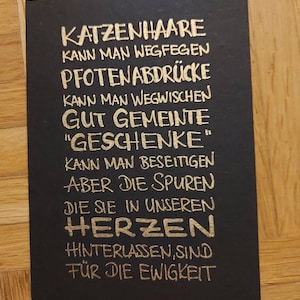 KATZENHAARE
KANN MAN WEGFEGEN
PFOTENABDRÜCKE
KANN MAN WEGWISCHEN
GUT GEMEINTE
"GESCHENKE"
KANN MAN BESEITIGEN
ABER DIE SPUREN
DIE SIE IN UNSEREN
HERZEN
HINTERLASSEN, SIND
FÜR DIE EWIGKEIT